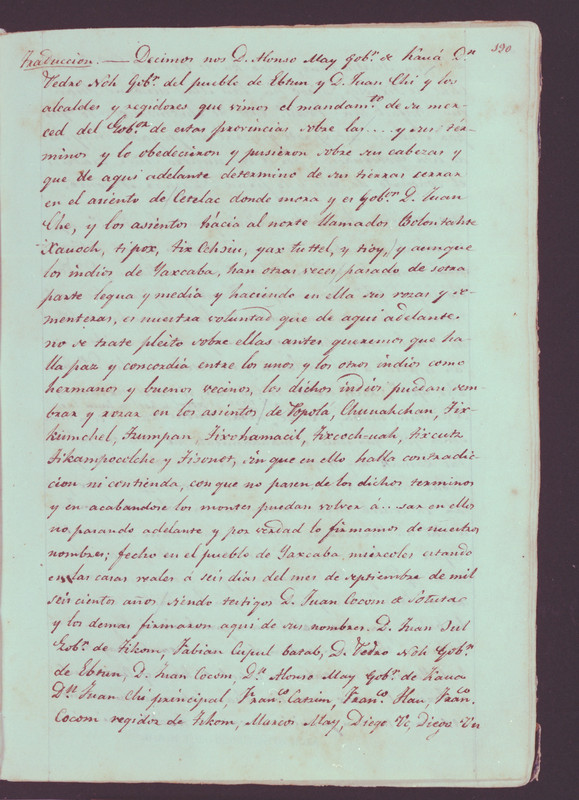 190
Traduccion. — Decimos nos D. Alonso May Gobr. de Kauá Dn
Pedro Noh Gobr. del pueblo de Ebtun y D. Juan Chi y los
alcaldes y regidores que vimos el mandamto. de su mer-
ced del Gobor. de estas provincias sobre las .... y sus tér-
minos y lo obedecieron y pusieron sobre sus cabezas y
que de aqui adelante determino de sus tierras cerrar
en el asiento de Cetelac donde mora y es Gobor. D. Juan
Che, y los asientos hácia al norte llamados Bolontahte
Xauoch, tipox, tix Cehsiu, yax tuttel, y tioy, y aunque
los indios de Yaxcaba, han otras veces pasado de sotra
parte legua y media y haciendo en ella sus rozas y se-
menteras, es nuestra voluntad que de aqui adelante
no se trate pleito sobre ellas antes queremos que ha-
lla paz y concordia entre los unos y los otros indios como
hermanos y buenos vecinos, los dichos indios puedan sem-
brar y rozar en los asientos de Popola, Chunahchan, Tix-
kumchel, Tzumpan, Tixohamacil, Tixcoch-uah, tixcutz
Tikampocolche y Tisonot, sin que en ello halla contradic-
cion ni contienda, con que no pasen de los dichos terminos
y en acabandose los montes puedan volver á .. sar en ellos
no pasando adelante y por verdad lo firmamos de nuestros
nombres; fecho en el pueblo de Yaxcaba, miercoles estando
en las casas reales á seis dias del mes de septiembre de mil
seis cientos años siendo testigos D. Juan Cocom de Sotuta
y los demas firmaron aqui de sus nombres. D. Juan
Gobr. de Tikom, Fabian Cupul batab, D. Pedro Noh Gobn
de Ebtun, D. Juan Cocom, Dn. Alonso May Gobr. de Kaua
Dn Juan Chi principal, Franco. Catzim, Franco. Hau, Franco.
Cocom regidor de Tikom, Marcos May, Diego Uc, Diego